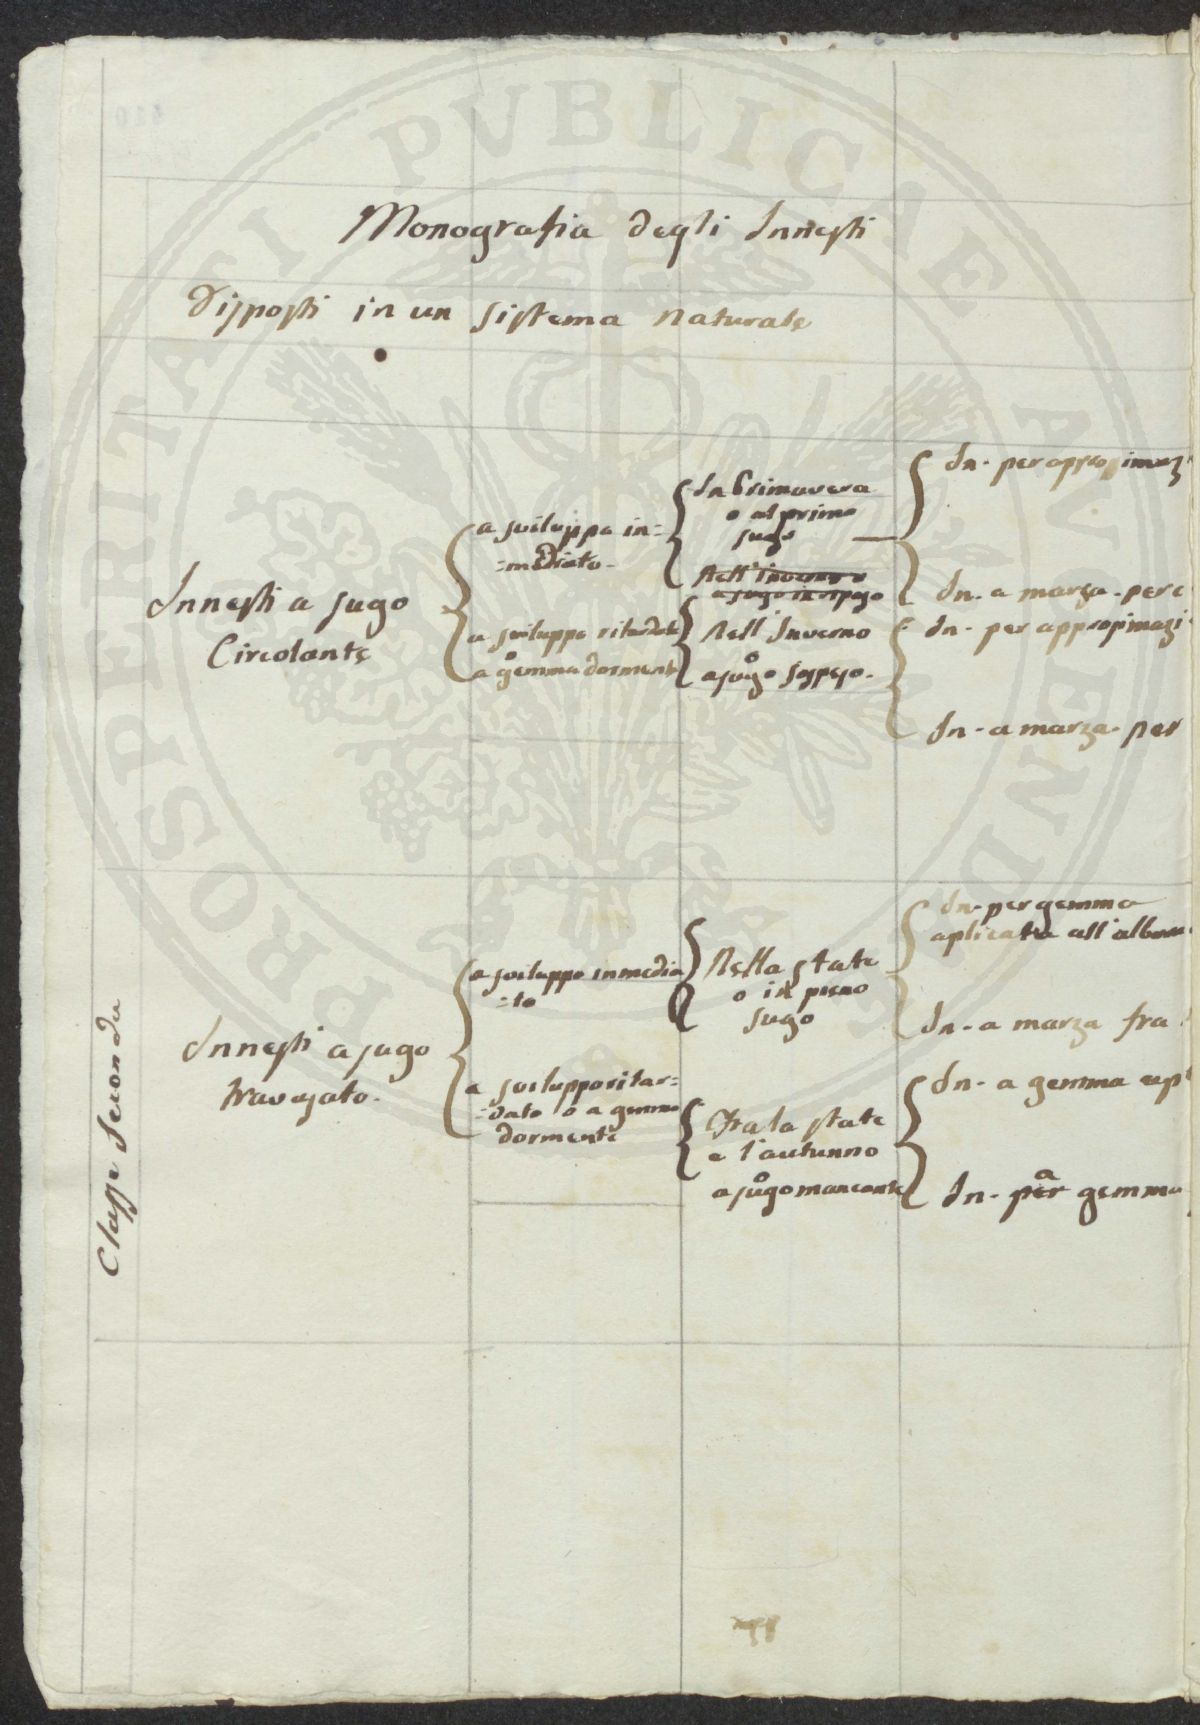 Monografia degli Innesti
Disposti in un sistema naturale
Innesti a sugo
Circolante
a sviluppo in=
=mediato.
a sviluppo ritardato
a gemma dormente
In Primavera
o al primo
sugo
Nell'inverno
a sugo in riposo
Nell'Inverno
a sugo sospeso.
In. per approssimaz
In. a marza. per c
In. per approssimazi
In. a marza. per
Classe Seconda
Innesti a sugo
travasato.
a sviluppo inmedia
=to
a sviluppo ritar=
=dato o a gemma
dormente
Nella state
o in pieno
sugo
Fra la state
e l'autunno
a sugo mancante
In. per gemma
aplicata all'album
In. a marza fra
In. a gemma apl
In. per a gemma
PROSPERITATI PUBLICAE AUGENDAE